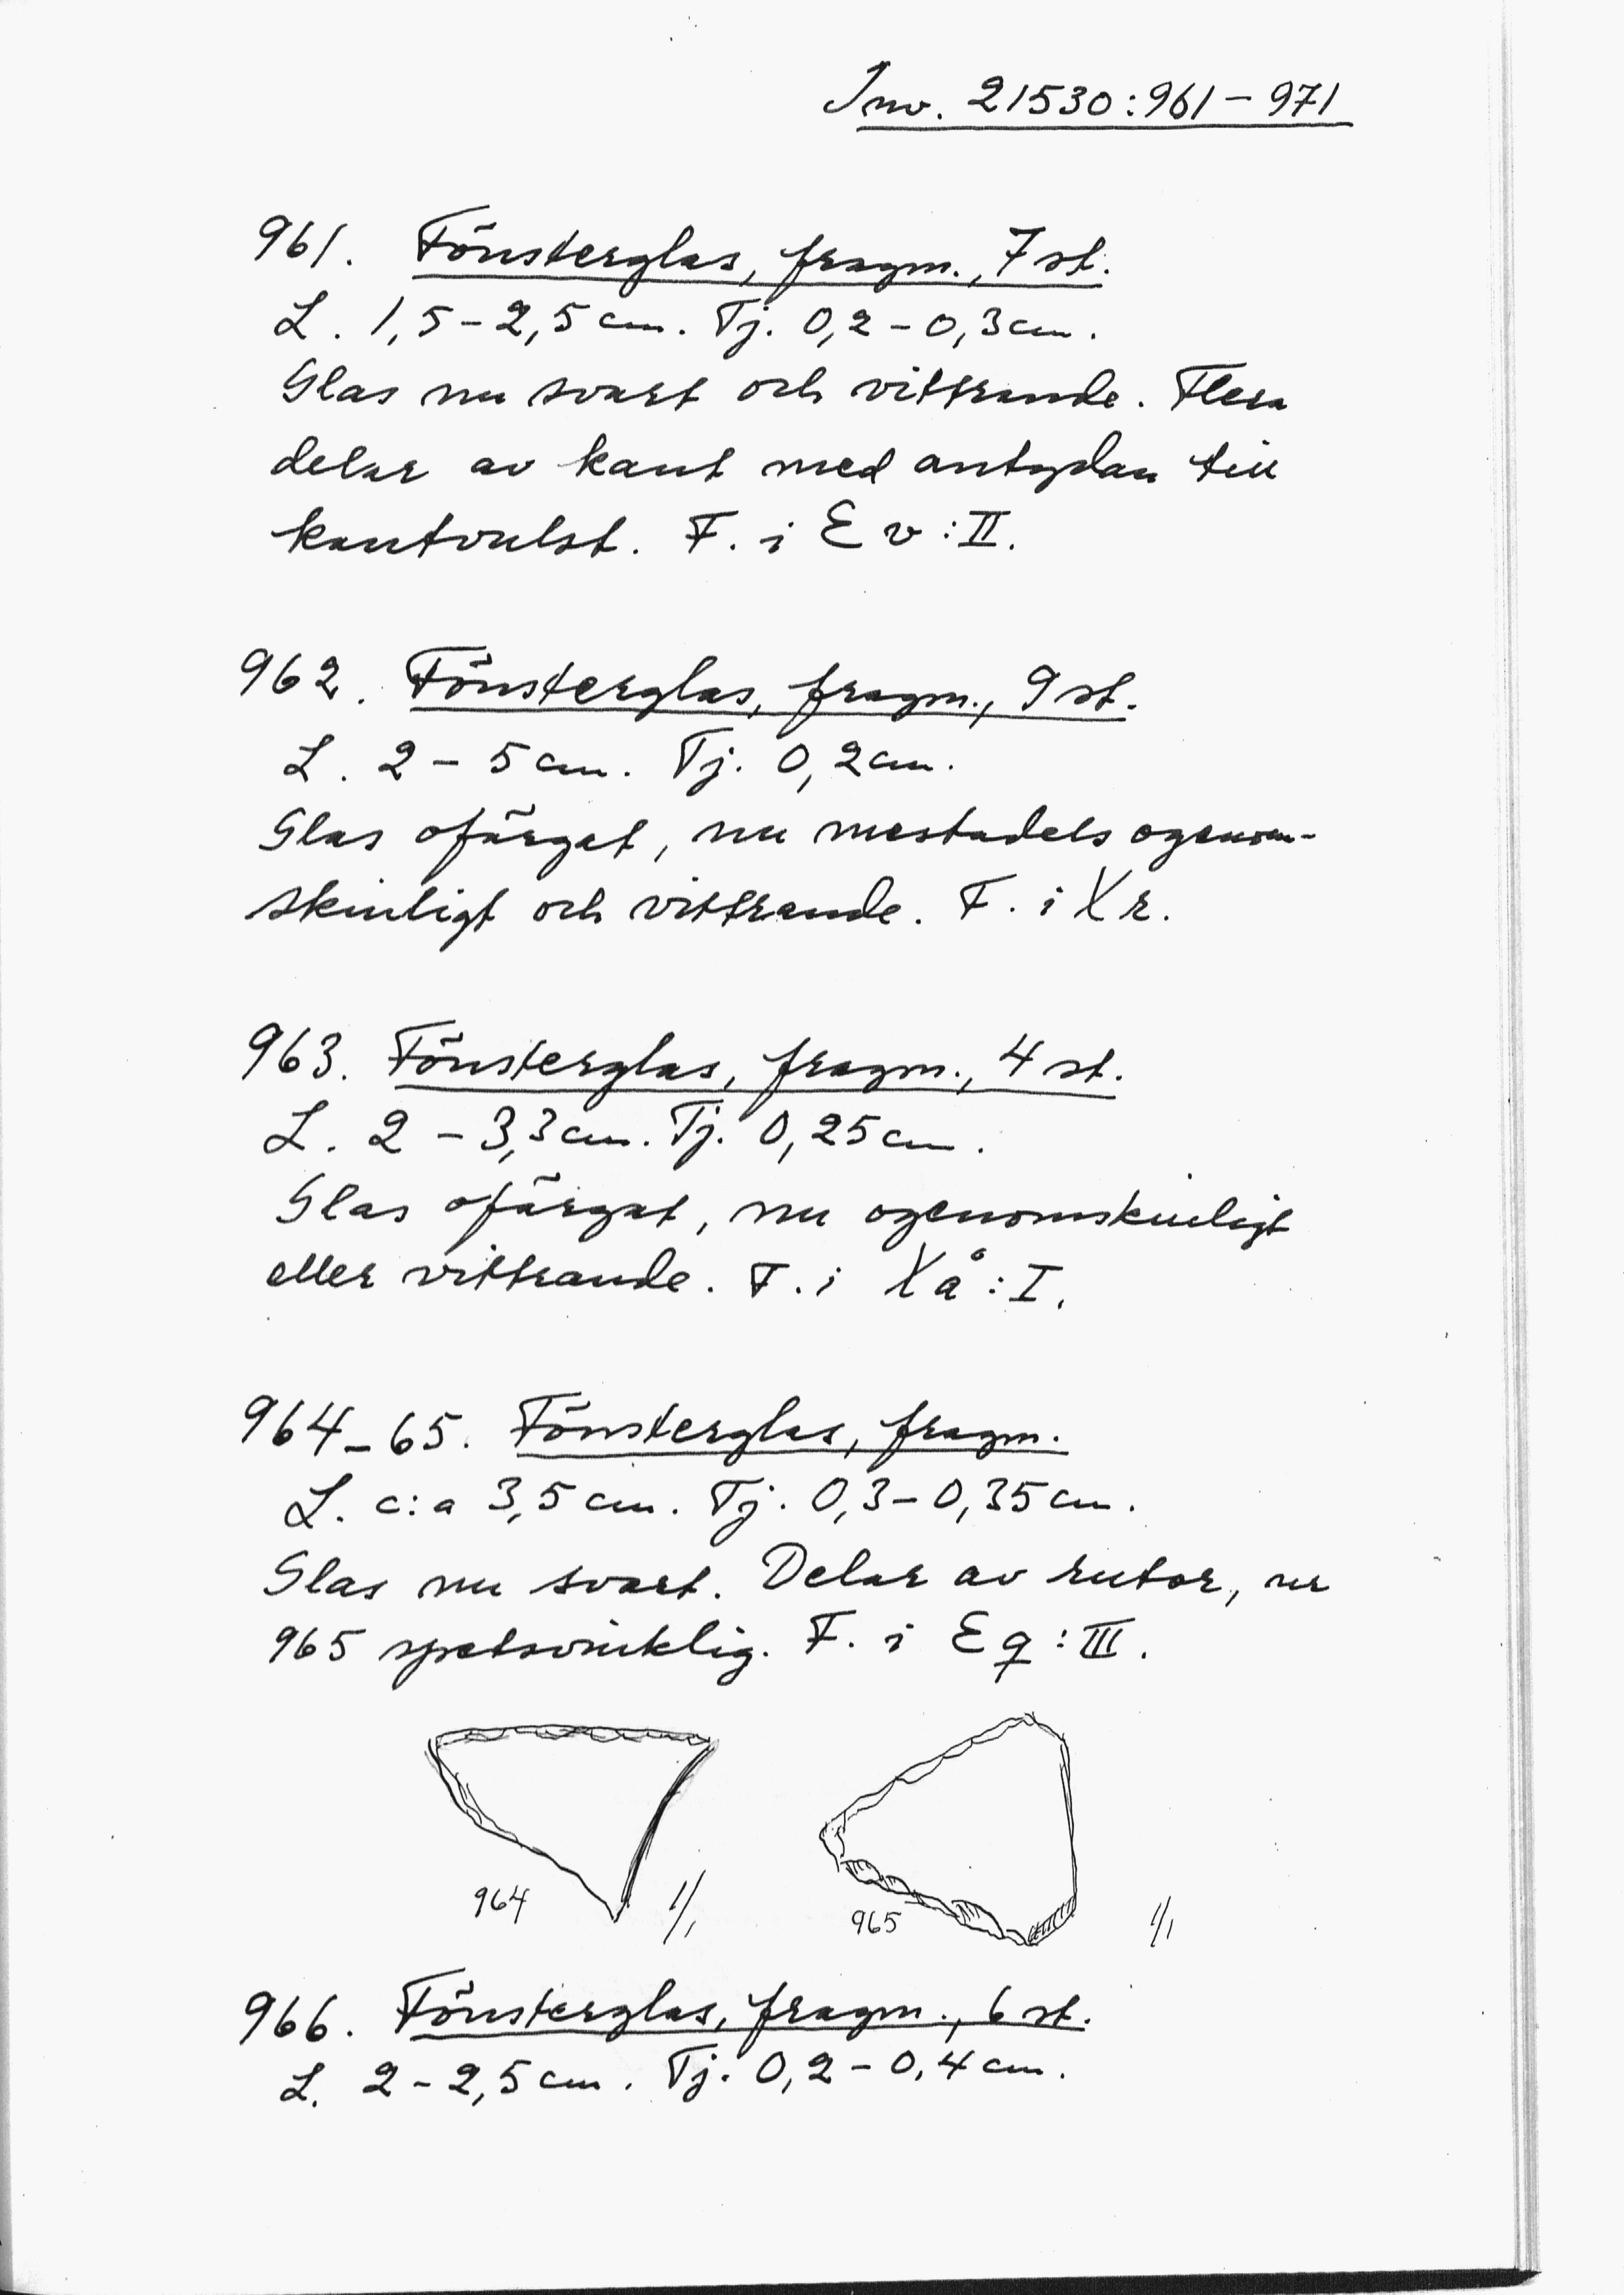 Inv. 21530:961-971
961. Fönsterglas, fragm., 7 st.
L. 1,5-2,5 cm. Tj. 0,2-0,3 cm.
Glas nu svart och vittrande. Flera
delar av kant med antydan till
kantvulst. F. i E v:II.
962. Fönsterglas, fragm., 9 st.
L. 2-5 cm. Tj. 0,2 cm.
Glas ofärgat, nu mestadels ogenom-
skinligt och vittrande. F. i X r.
963. Fönsterglas, fragm., 4 st.
L. 2-3,3 cm. Tj. 0,25 cm.
Glas ofärgat, nu ogenomskinligt
eller vittrande. F. i X å:I.
964-65. Fönsterglas, fragm.
L. c:a 3,5 cm. Tj. 0,3-0,35 cm.
Glas nu svart. Delar av rutor, nr
965 spetsvinklig. F. i E q:III.
964 1/1 965 1/1
966. Fönsterglas, fragm., 6 st.
L. 2-2,5 cm. Tj. 0,2-0,4 cm.